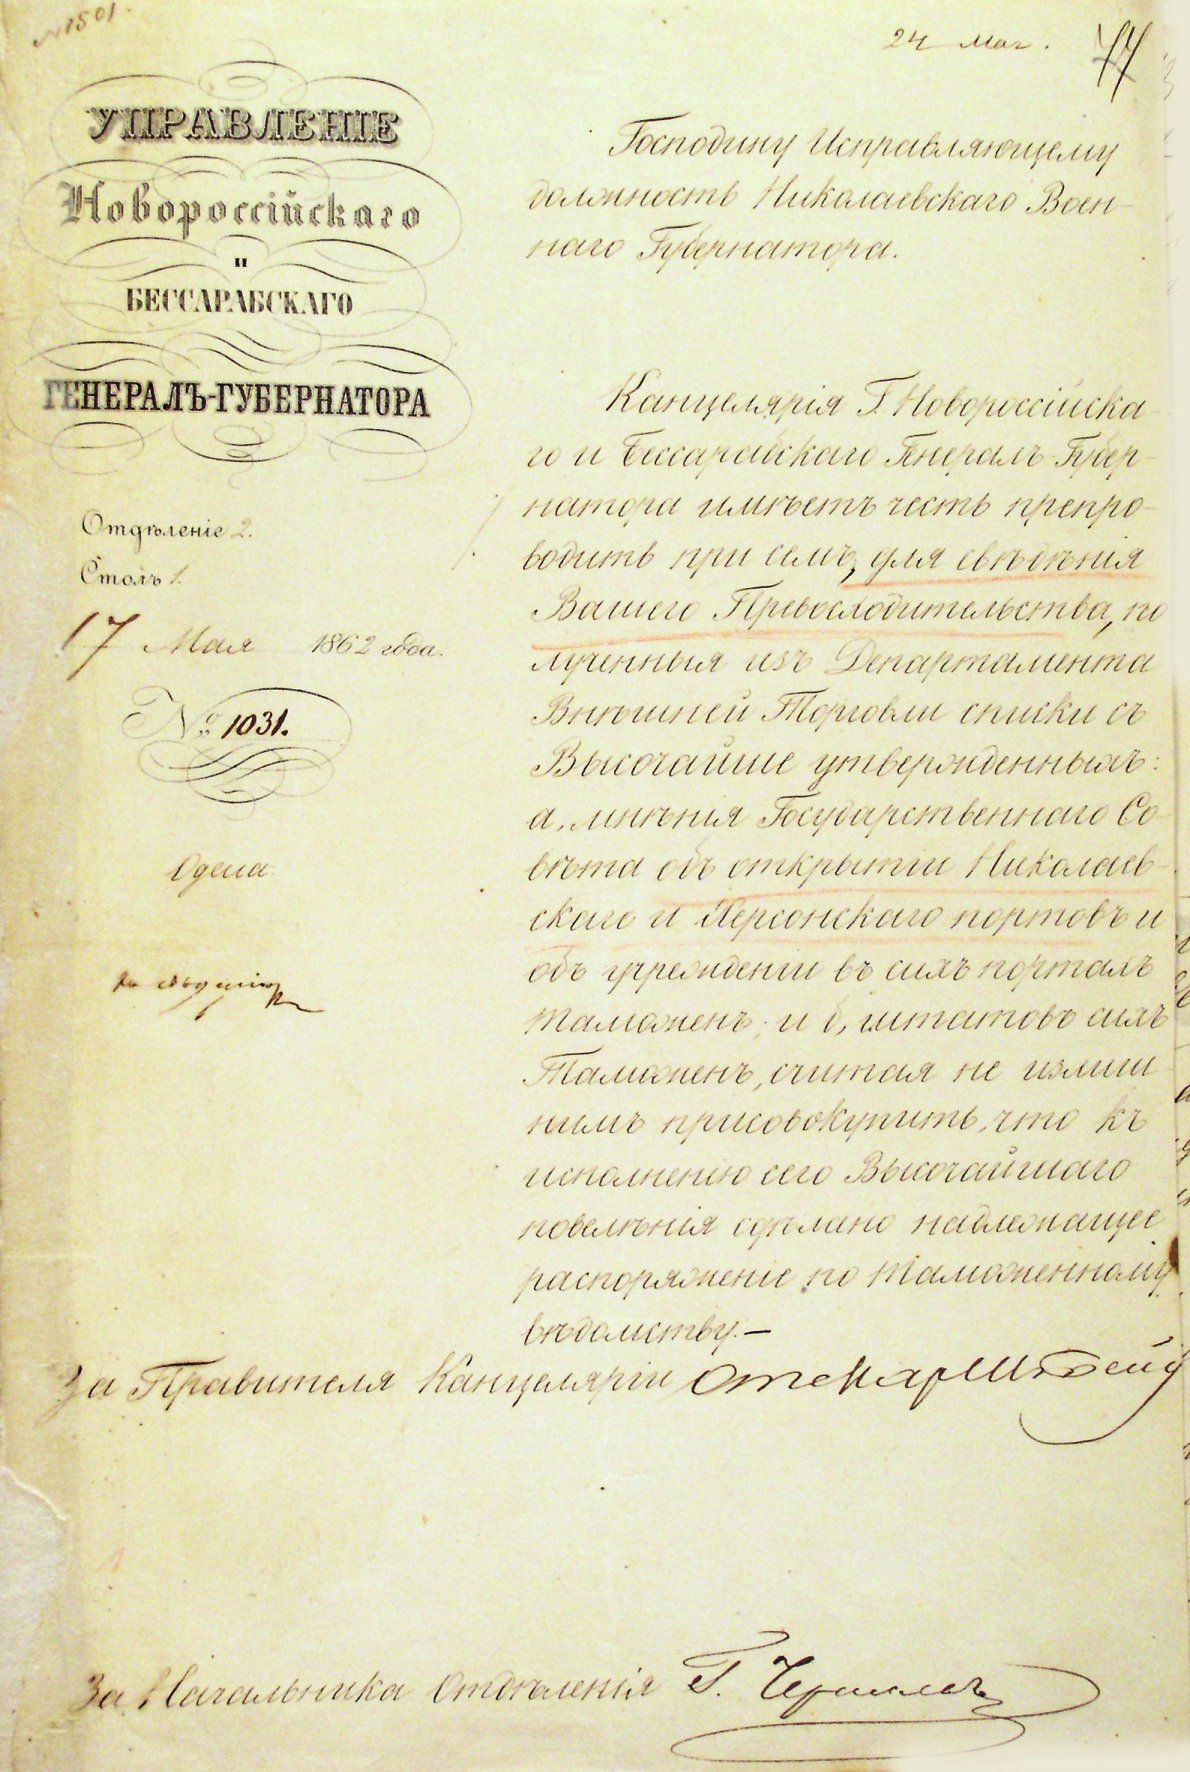 № 1501.
24 Мая.
77
УПРАВЛЕНІЕ
Новороссійскаго
и
БЕССАРАБСКАГО
ГЕНЕРАЛЪ-ГУБЕРНАТОРА
Отдѣленіе 2.
Столъ 1.
17 Мая 1862 года.
№ 1031.
Одесса
Господину Исправляющему
должность Николаевскаго Воен-
наго Губернатора.
Канцелярія Г. Новороссійска-
го и Бессарабскаго Генералъ-Губер-
натора имѣетъ честь препро-
водить при семъ, для свѣдѣнія
Вашего Превосходительства, по
лученныя изъ Департамента
Внѣшней Торговли списки съ
Высочайше утвержденныхъ:
а, мнѣнія Государственнаго Со-
вѣта объ открытіи Николаев-
скаго и Херсонскаго портовъ и
объ учрежденіи въ сихъ портахъ
таможенъ; и б, штатовъ сихъ
Таможенъ, считая не излиш-
нимъ присовокупить, что къ
исполненію сего Высочайшаго
повелѣнія сдѣлано надлежащее
распоряженіе по таможенному
вѣдомству.—
За Правителя Канцеляріи
За Начальника Отдѣленія Г.